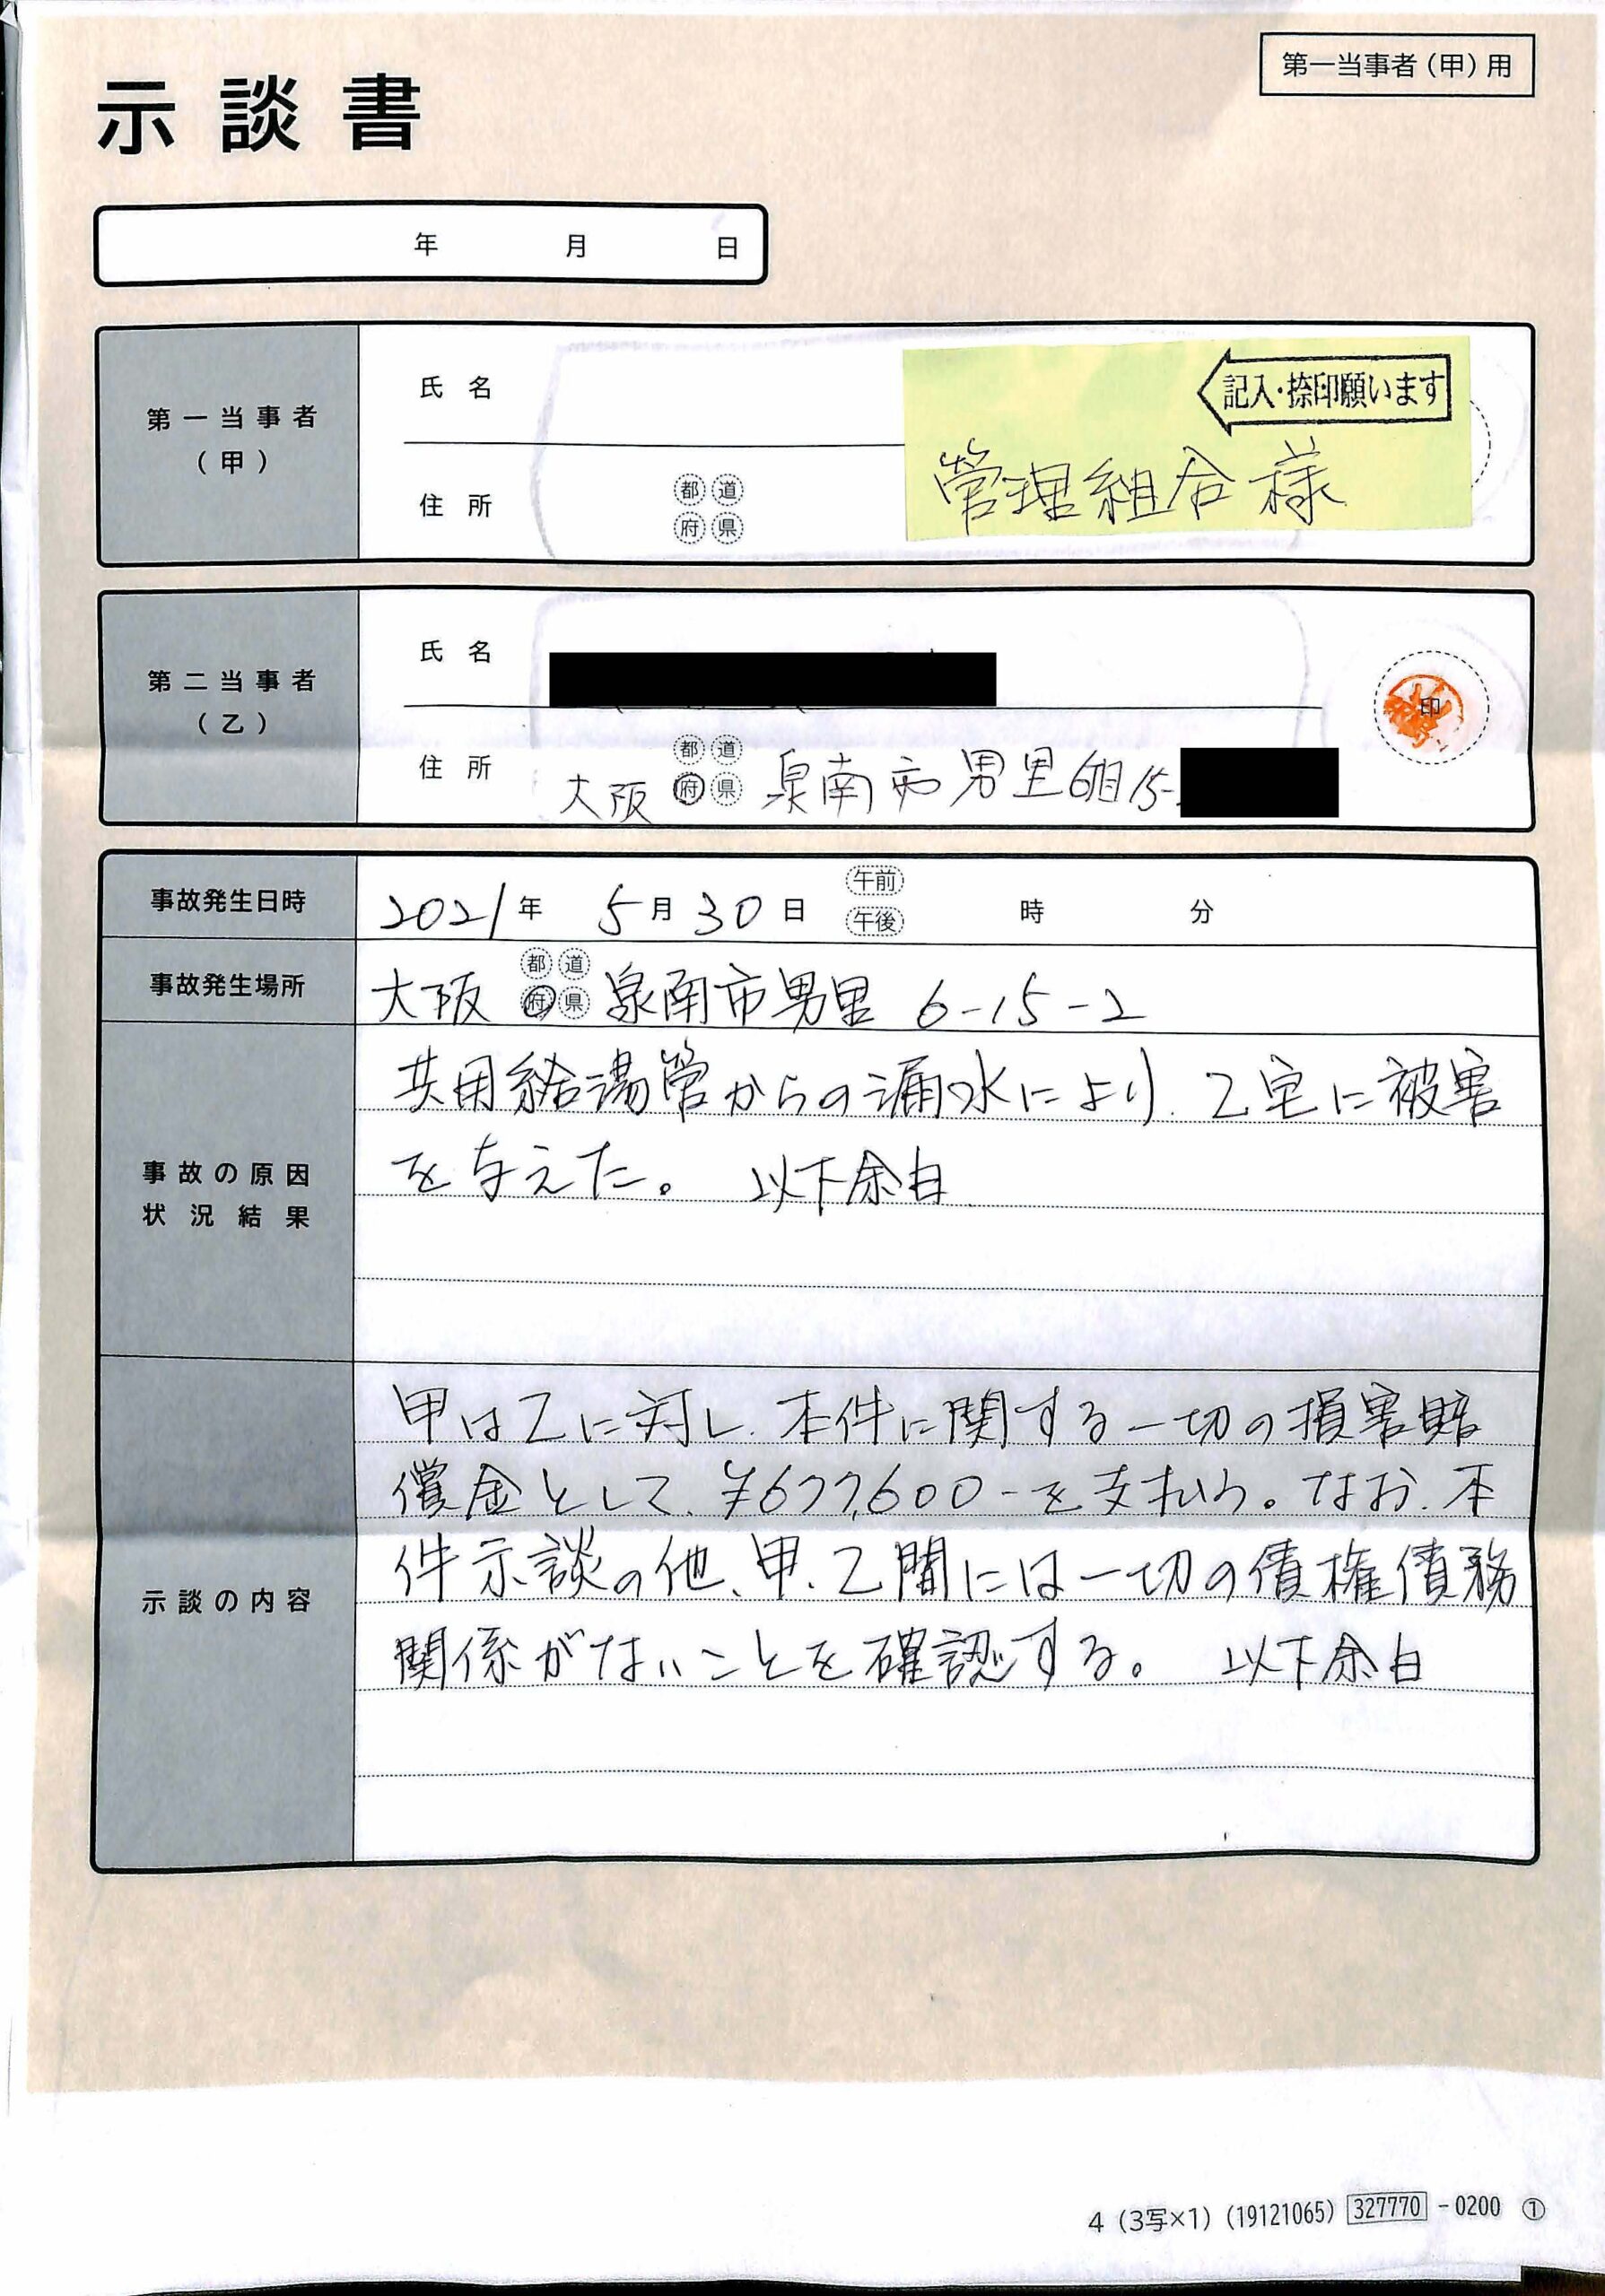 第一当事者（甲）用
示談書
年 月 日
第一当事者
（甲）
氏名
記入・捺印願います
管理組合様
住所
都 道
府 県
第二当事者
（乙）
氏名
印
住所
都 道
大阪 府 県 泉南市男里6丁目15-
事故発生日時
2021年 5月30日 午前 午後 時 分
事故発生場所
都 道
大阪 府 県 泉南市男里 6-15-2
事故の原因
状況結果
共用給湯管からの漏水により、乙宅に被害
を与えた。 以下余白
示談の内容
甲は乙に対し、本件に関する一切の損害賠
償金として、¥677,600-を支払う。なお、本
件示談の他、甲、乙間には一切の債権債務
関係がないことを確認する。 以下余白
4（3写×1）（19121065） 327770 -0200 ①